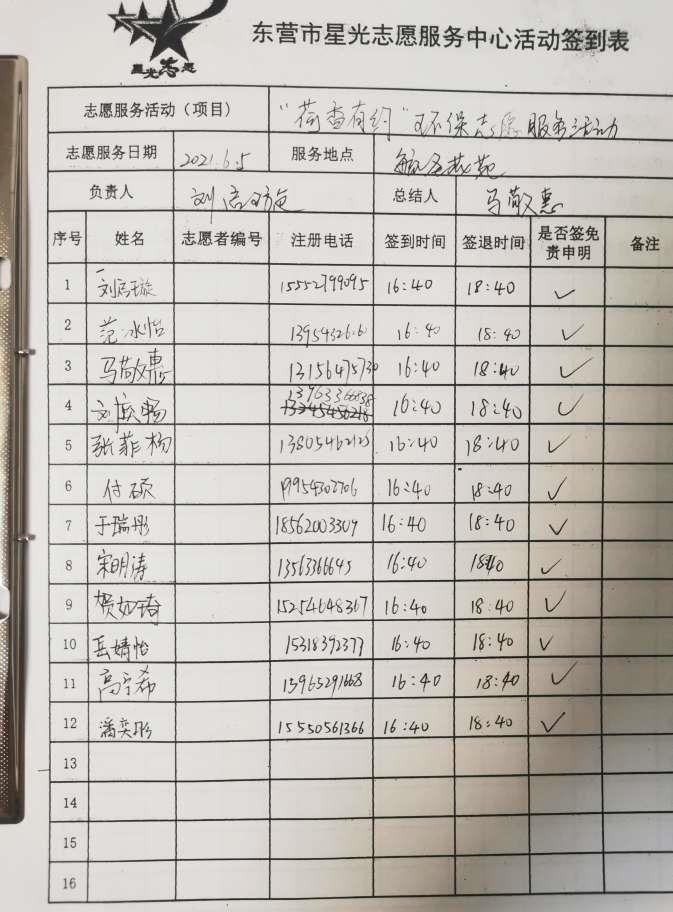 星光志愿
东营市星光志愿服务中心活动签到表
志愿服务活动（项目） “荷香有约”环保志愿服务活动
志愿服务日期 2021.6.5 服务地点
负责人 刘 总结人 马敬惠
序号 姓名 志愿者编号 注册电话 签到时间 签退时间 是否签免责申明 备注
1 15552799095 16:40 18:40 ✓
2 范冰怡 16:40 18:40 ✓
3 马敬惠 13156475730 16:40 18:40 ✓
4 16:40 18:40 ✓
5 张菲杨 13805462123 16:40 18:40 ✓
6 付硕 19954302706 16:40 18:40 ✓
7 于瑞彤 18562003309 16:40 18:40 ✓
8 宋明涛 13563366645 16:40 18:40 ✓
9 贺如琦 15254648367 16:40 18:40 ✓
10 岳婧怡 15318392373 16:40 18:40 ✓
11 高宁希 15965291668 16:40 18:40 ✓
12 潘奕彤 15550561366 16:40 18:40 ✓
13
14
15
16